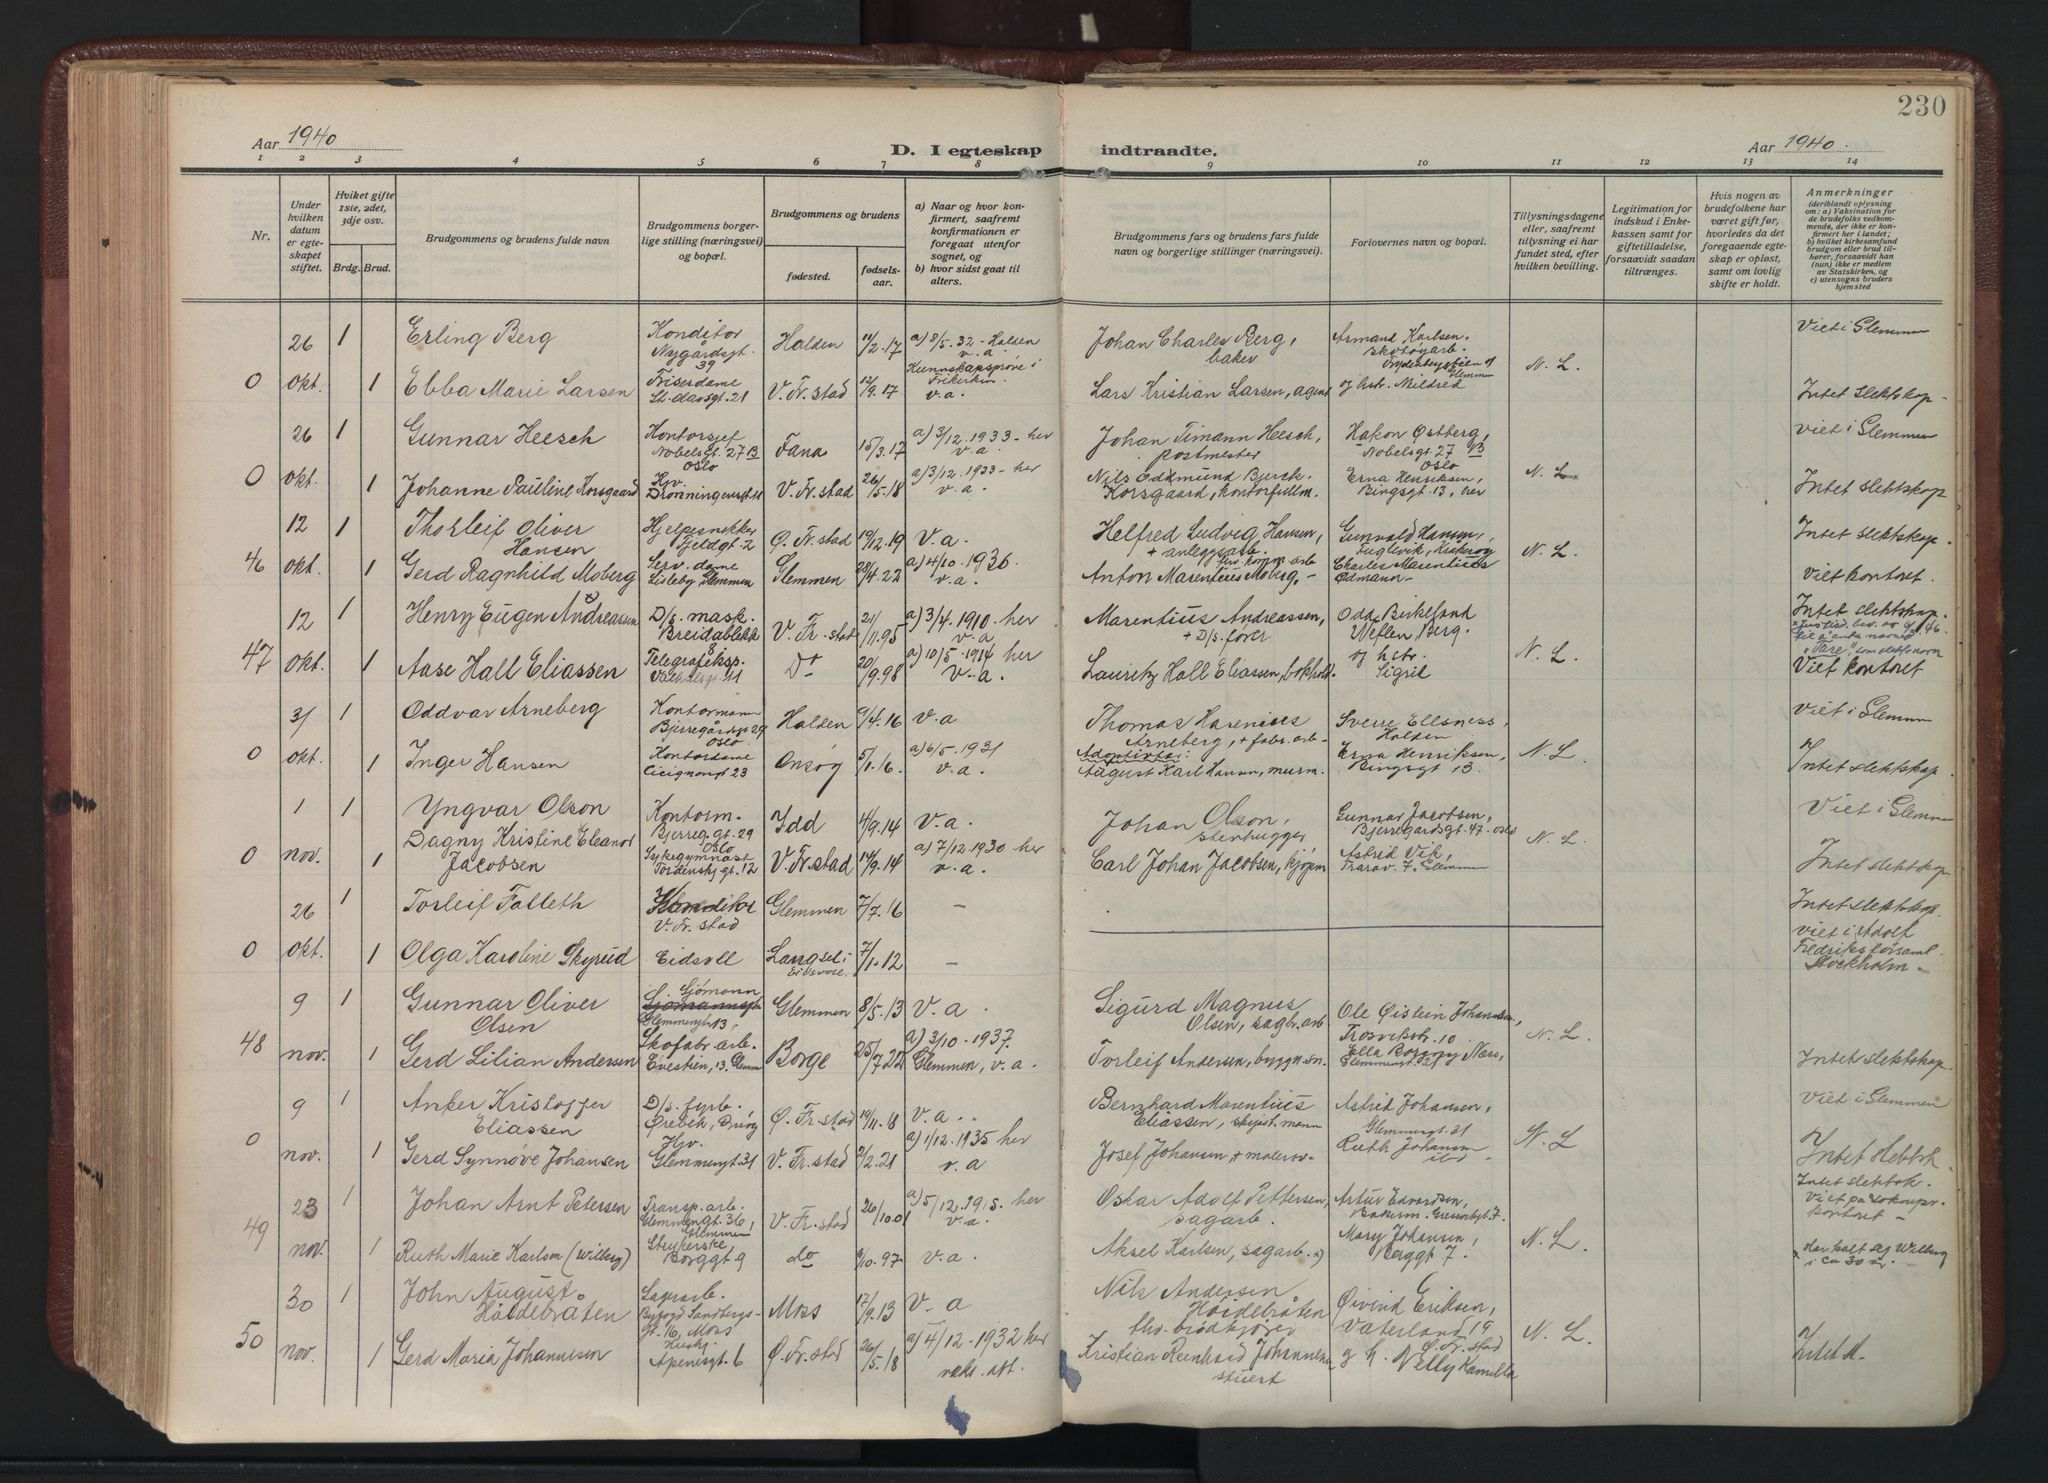 230
Aar 1940
D. I egteskap indtraadte.
Aar 1940.
1 2 3 4 5 6 7 8 9 10 11 12 13 14
Nr.
Under hvilken datum er egteskapet stiftet.
Hviket gifte 1ste, 2det, 3dje osv.
Brdg. Brud.
Brudgommens og brudens fulde navn
Brudgommens borgerlige stilling (næringsvei) og bopæl.
Brudgommens og brudens
fødested. fødselsaar.
a) Naar og hvor konfirmert, saafremt konfirmationen er foregaat utenfor sognet, og
b) hvor sidst gaat til alters.
Brudgommens fars og brudens fars fulde navn og borgerlige stillinger (næringsvei).
Forlovernes navn og bopæl.
Tillysningsdagene eller, saafremt tillysning ei har fundet sted, efter hvilken bevilling.
Legitimation for indskud i Enkekassen samt for giftetilladelse, forsaavidt saadan tiltrænges.
Hvis nogen av brudefolkene har været gift før, hvorledes da det foregaaende egteskap er opløst, samt om lovlig skifte er holdt.
Anmerkninger (deriblandt oplysning om: a) Vaksination for de brudefolks vedkommende, der ikke er konfirmert her i landet; b) hvilket kirkesamfund brudgom eller brud tilhører, forsaavidt han (nun) ikke er medlem av Statskirken, og c) utensogns bruders hjemsted
26 1 Erling Berg Konditor Nygårdsgt. 39 Halden 11/2.17 a) 8/5.32 - Halden v.a. Johan Charles Berg, baker Armand Karlsen, skotøyarb. Glemmen Viet i Glemmen
0 okt. 1 Ebba Marie Larsen Frisørdame St. Olavsgt. 21 V. Fr.stad 12/9.17 Kunnskapsprøve i Frikirken v.a. Lars Kristian Larsen, agent og hstr. Mildred N. L. Intet slektskap
26 1 Gunnar Heesch Kontorsjef Nobelsgt. 27 B Oslo Fana 15/3.17 a) 3/12.1933 - her v.a. Johan Timann Heesch, postmester Hakon Østberg, Nobelsgt. 27 B Oslo Viet i Glemmen
0 okt. 1 Johanne Pauline Korsgaard Hjv. Dronningensgt. V. Fr.stad 26/5.18 a) 3/12.1933 - her v.a. Nils Oddmund Bjerck Korsgaard, kontorfullm. Erna Henriksen, Bingsgt. 13, her N. L. Intet slektskap
12 1 Thorleif Oliver Hansen Hjelpesnekker Fjeldgt. 2 Ø. Fr.stad 19/12.19 v.a. Helfred Ludvig Hansen, + anleggsarb. Gunvald Hansen, Fuglevik, Kråkerøy Intet slektskap.
46 okt. 1 Gerd Ragnhild Moberg Serv. dame Lisleby Glemmen Glemmen 20/4.22 a) 4/10.1936. v.a. Anton Marentius Moberg, Charles Marentius Ødmann N. L. Viet kontoret.
12 1 Henry Eugen Andreassen D/s. mask. Breidablikk V. Fr.stad 21/11.95 a) 3/4.1910 her v.a Marentius Andreassen, + D/s. fører Odd Birkeland Weflen Berg. Intet slektskap.
47 okt. 1 Aase Hall Eliassen Telegrafeksp. Do 20/9.98 a) 10/5.1914 her v.a. Lauritz Hall Eliassen, bokhold. og hstr. Sigrid N. L. Viet kontoret
31 1 Oddvar Arneberg Kontormann Bjerregårdsgt 29 Oslo Halden 9/4.16 v.a Thomas Harenius Arneberg, + fabr. arb. Sverre Ellsness, Halden Viet i Glemmen
0 okt. 1 Inger Hansen Kontordame Cicignongt 23 Onsøy 5/1.16. a) 6/5.1931 v.a. Adoptivfar: August Karl Hansen, murm. Erna Henriksen, Bingsgt 13. N. L. Intet slektskap
1 1 Yngvar Olson Kontorm. Bjerreg. gt. 29 Oslo Idd 4/9.14 v.a. Johan Olson, stenhugger Gunnar Jacobsen, Bjerregårdsgt. 47. Oslo Viet i Glemmen
0 nov. 1 Dagny Kristine Eleanor Jacobsen Sykegymnast Tordenskj. gt. 12 V. Fr.stad 14/9.14 a) 7/12.1930 her v.a. Carl Johan Jacobsen, kjøpm Astrid Vik, Trarav. 7. Glemmen N. L. Intet slektskap
26 1 Torleif Falleth Konditor V. Fr.stad Glemmen 7/7.16 — Intet slektskap.
0 okt. 1 Olga Karoline Skyrud Eidsvoll Langset i Eidsvoll 7/1.12 — viet i Adolf Fredriks forsaml. Stockholm
9 1 Gunnar Oliver Olsen Sjømann Glemmengt. 13, Glemmen 8/5.13 v.a. Sigurd Magnus Olsen, sagbr. arb. Ole Øistein Johansen, Trosvikstr. 10
48 nov. 1 Gerd Lilian Andersen Skofabr. arb. Evestien, 13. Glemm Borge 25/7.22 a) 3/10.1937. Glemmen, v.a. Torleif Andersen, byggn. sn. Ella Næss, N. L. Intet slektskap.
9 1 Anker Kristoffer Eliassen D/s. fyrb. Ørebek, Onsøy Ø. Fr.stad 19/11.18 v.a. Bernhard Marentius Eliassen, mann Astrid Johansen, Glemmengt. 31 Viet i Glemmen
0 nov. 1 Gerd Synnøve Johansen Hjv. Glemmengt. 31 V. Fr.stad 2/2.21 a) 1/12.1935 her v.a Josef Johansen, + malersv. Ruth Johansen N. L Intet slektsk.
23 1 Johan Arnt Petersen Transp. arb. Glemmengt. 36, Glemmen V. Fr.stad 26/10.01 a) 5/12.1915. her v.a. Oskar Adolf Pettersen, sagarb. Artur Edvardsen, Intet slektsk. Viet på kontoret
49 nov. 1 Ruth Marie Karlsen (Wilberg) Strykerske Borggt 9 do 6/10.97 v.a. Aksel Karlsen, sagarb. Mary Johansen, Berggt 7. N. L. Har kalt sig Wilberg i ca 30 år.
30 1 John August Høidebråten Lagerarb. Byfogd Sandbergsgt. 16, Moss Moss 17/9.13 v.a Nils Andersen Høidebråten Øivind Eriksen, Vaterland 19 Ø. Fr.stad
50 nov. 1 Gerd Maria Johannesen Hushj. Apenesgt. 6 Ø. Fr.stad 26/5.18 a) 4/12 - 1932 her Kristian Reinhard Johannesen stuert og h. Nelly Kamilla N. L. Intet sl.